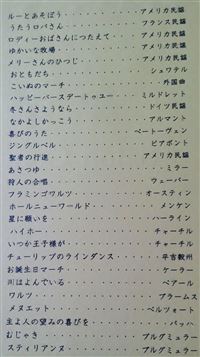 ルーとあそぼう・・・・・・・・・・アメリカ民謡
うたうロバさん・・・・・・・・・・フランス民謡
ロディーおばさんにつたえて・・・・アメリカ民謡
ゆかいな牧場・・・・・・・・・・・アメリカ民謡
メリーさんのひつじ・・・・・・・・アメリカ民謡
おともだち・・・・・・・・・・・・シュワテル
こいぬのマーチ・・・・・・・・・・外国曲
ハッピーバースデートゥユー・・・・ミルドレット
冬さんさようなら・・・・・・・・・ドイツ民謡
なかよしかっこう・・・・・・・・・アルマント
喜びのうた・・・・・・・・・・・・ベートーヴェン
ジングルベル・・・・・・・・・・・ピアポント
聖者の行進・・・・・・・・・・・・アメリカ民謡
あさつゆ・・・・・・・・・・・・・ミラー
狩人の合唱・・・・・・・・・・・・ウェーバー
フラミンゴワルツ・・・・・・・・・オースティン
ホールニューワールド・・・・・・・メンケン
星に願いを・・・・・・・・・・・・ハーライン
ハイホー・・・・・・・・・・・・・チャーチル
いつか王子様が・・・・・・・・・・チャーチル
チューリップのラインダンス・・・・平吉毅州
お誕生日マーチ・・・・・・・・・・ケーラー
川はよんでいる・・・・・・・・・・ベアール
ワルツ・・・・・・・・・・・・・・ブラームス
メヌエット・・・・・・・・・・・・ペルツォート
主よ人の望みの喜びを・・・・・・・バッハ
むじゃき・・・・・・・・・・・・・ブルグミュラー
スティリアンヌ・・・・・・・・・・ブルグミュラー